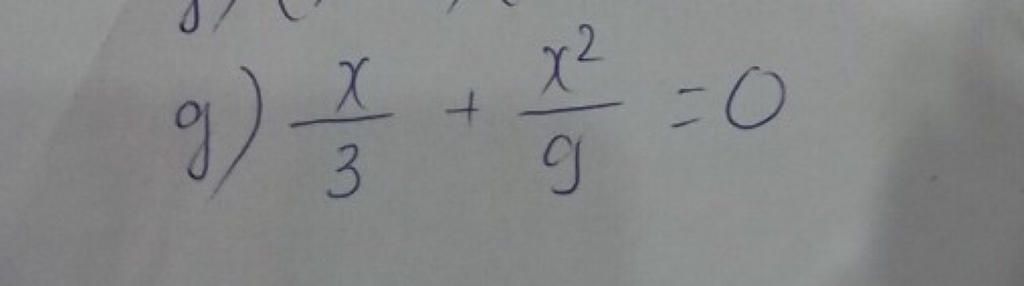 g) x/3 + x²/9 = 0